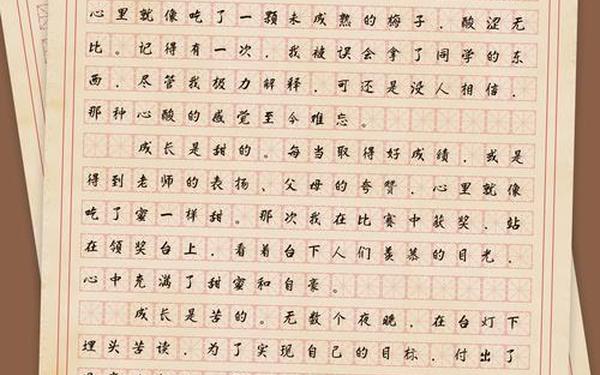 心里就像吃了一颗未成熟的梅子，酸涩无
比。记得有一次，我被误会拿了同学的东
西，尽管我极力解释，可还是没人相信，
那种心酸的感觉至今难忘。
成长是甜的。每当取得好成绩，或是
得到老师的表扬、父母的夸赞，心里就像
吃了蜜一样甜。那次我在比赛中获奖，站
在领奖台上，看着台下人们羡慕的目光，
心中充满了甜蜜和自豪。
成长是苦的。无数个夜晚，在台灯下
埋头苦读，为了实现自己的目标，付出了